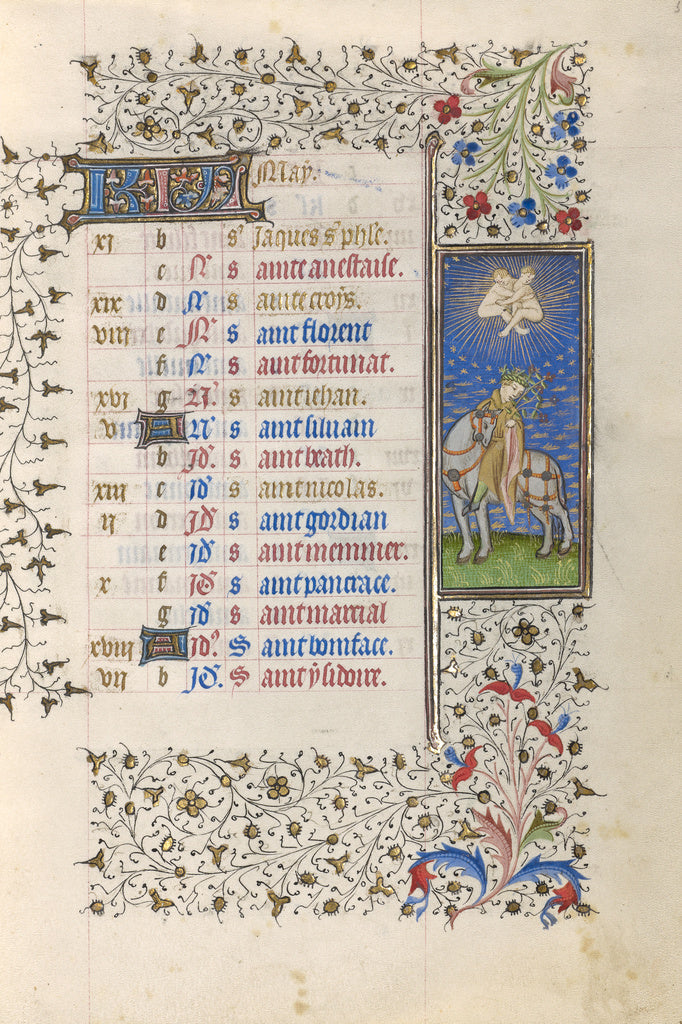 KL May.
xj b s Jaques s phle.
c N s ainte anestaise.
xix d N s ainte croys.
viij e N s aint florent
f N s aint fortunat.
xvj g N s aint iehan.
v A N s aint siluain
b Jd s aint beath.
xiij c Jd s aint nicolas.
ij d Jd s aint gordian
e Jd s aint memmer.
x f Jd s aint pancrace.
g Jd s aint marcial
xviij A Jd S aint boniface.
vij b Jd S aint ysidoire.